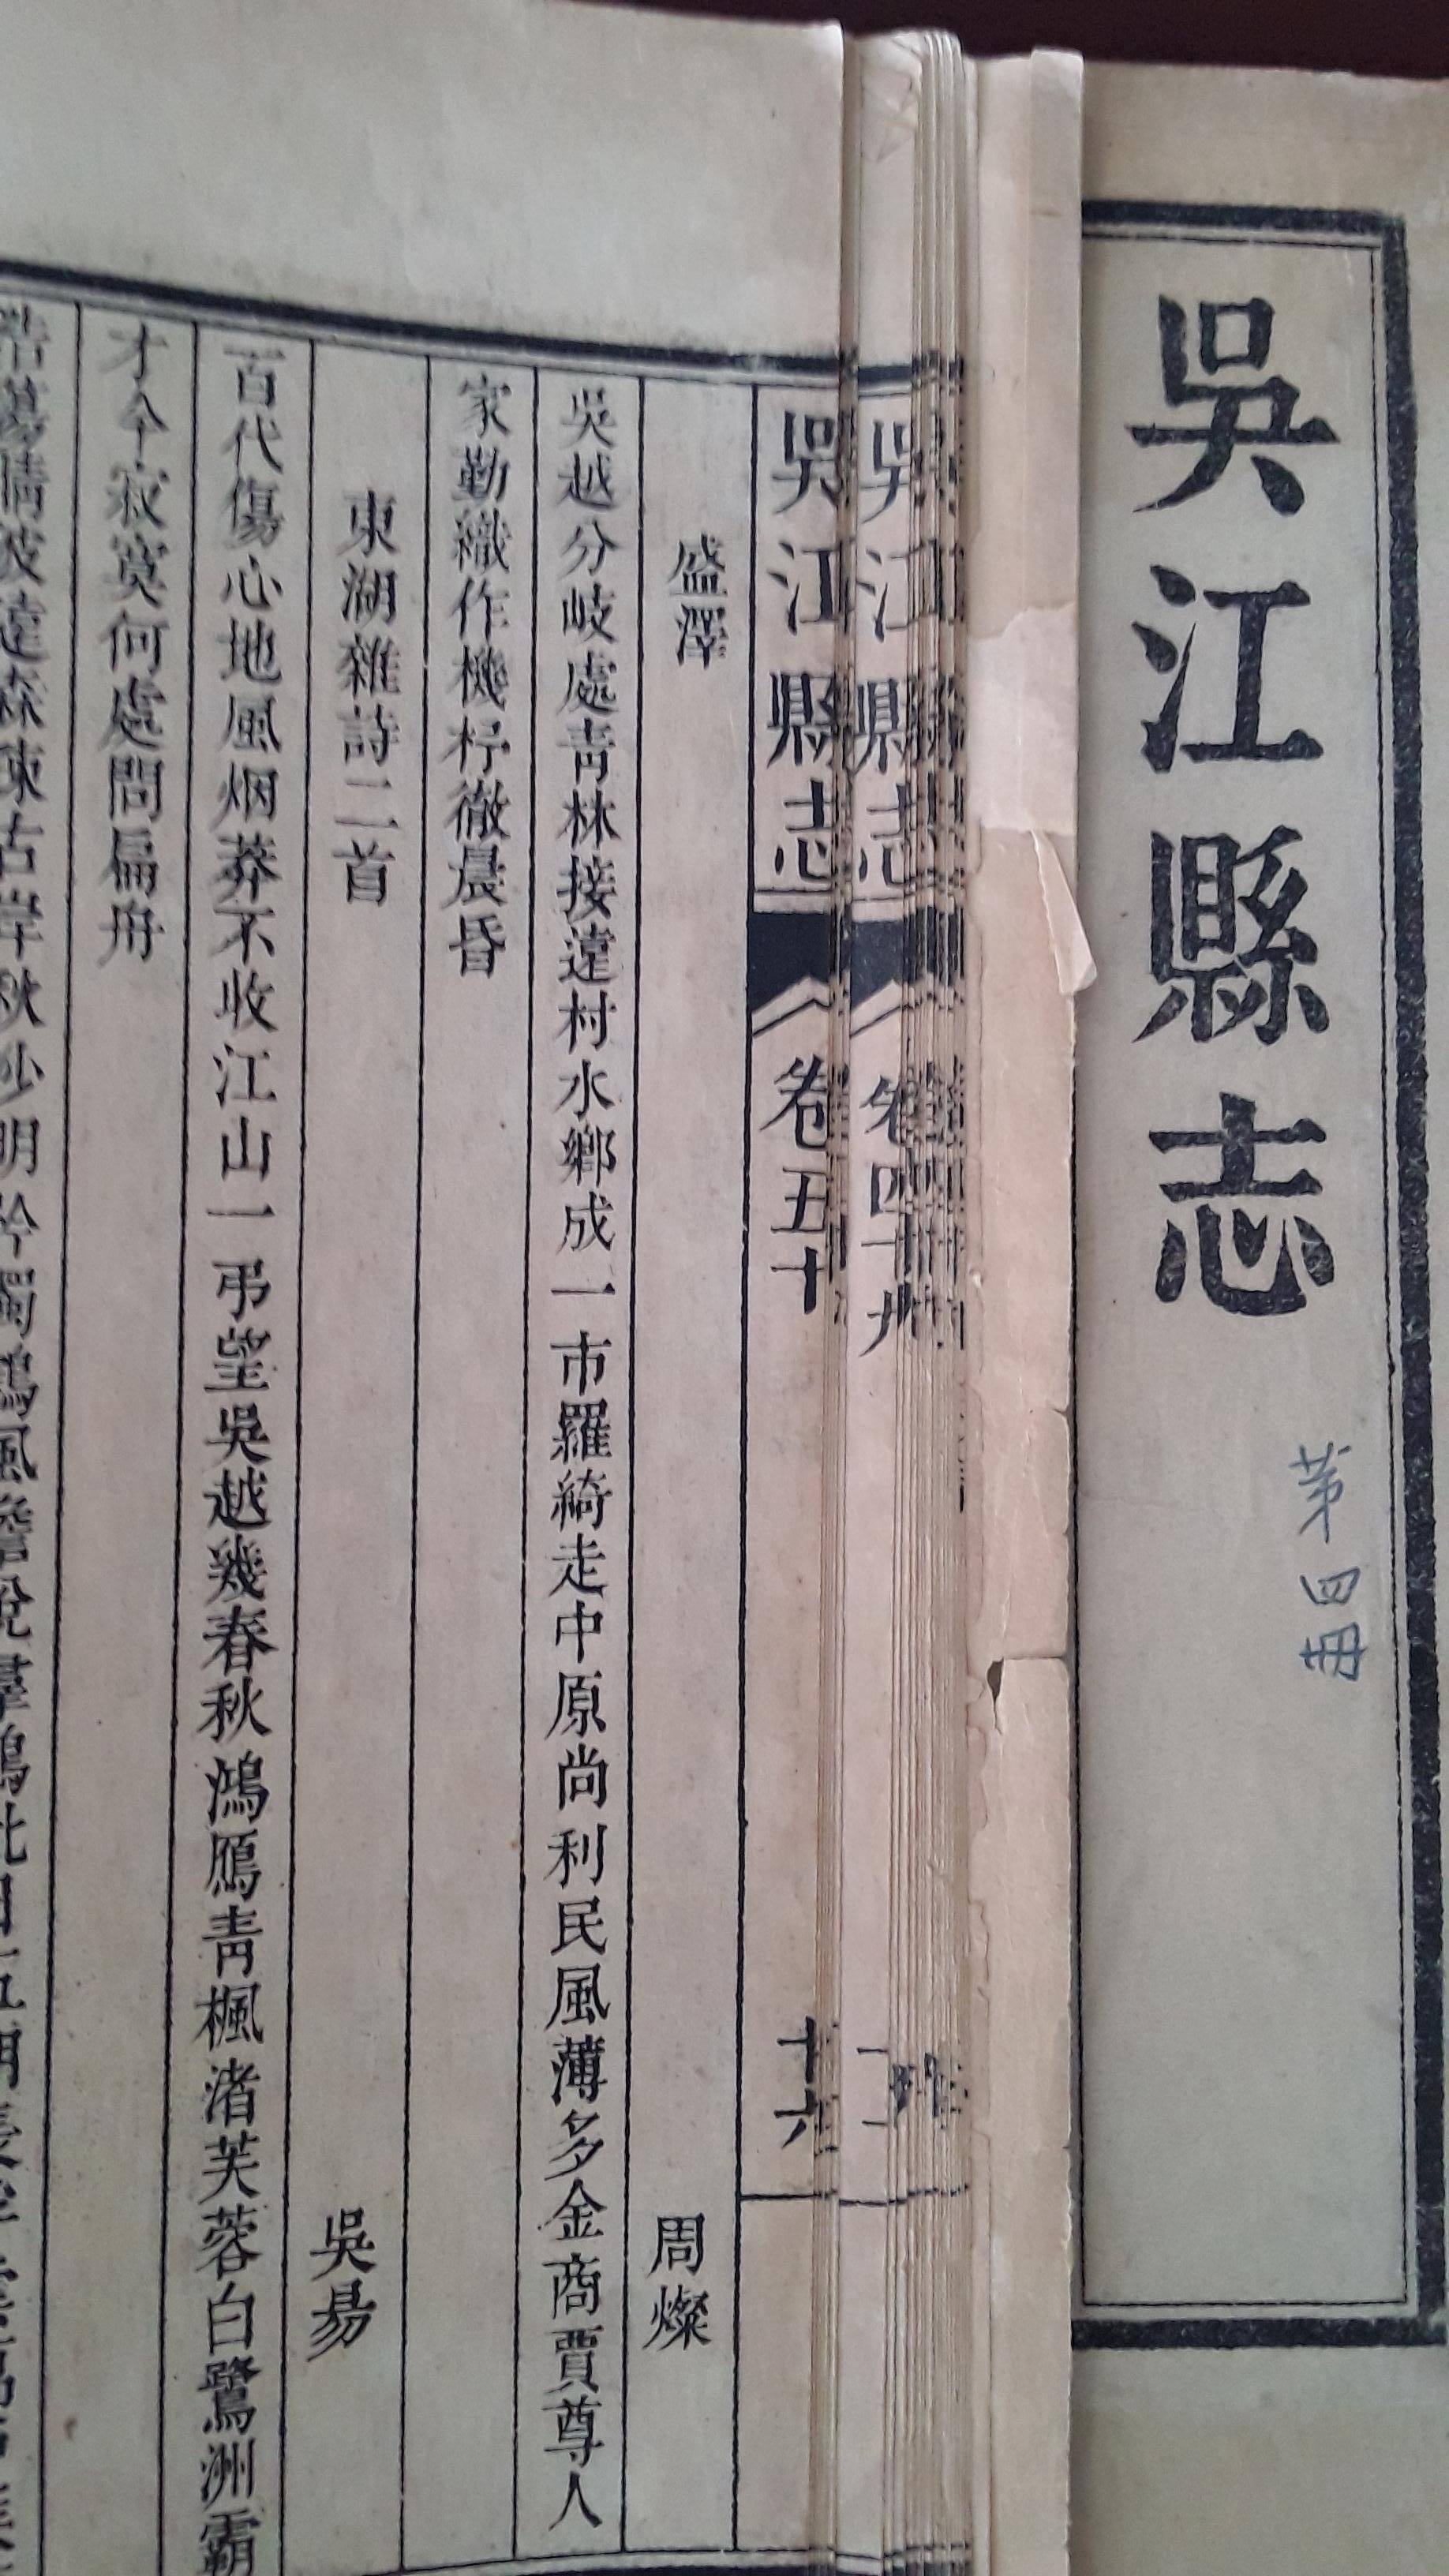 吳江縣志
第四冊
吳江縣志
卷四十九
吳江縣志
卷五十
十六
盛澤
周燦
吳越分岐處靑林接遠村水鄉成一市羅綺走中原尚利民風薄多金商賈尊人
家勤織作機杼徹晨昏
東湖雜詩二首
吳昜
百代傷心地風烟莽不收江山一弔望吳越幾春秋鴻鴈靑楓渚芙蓉白鷺洲霸
才今寂寞何處問扁舟